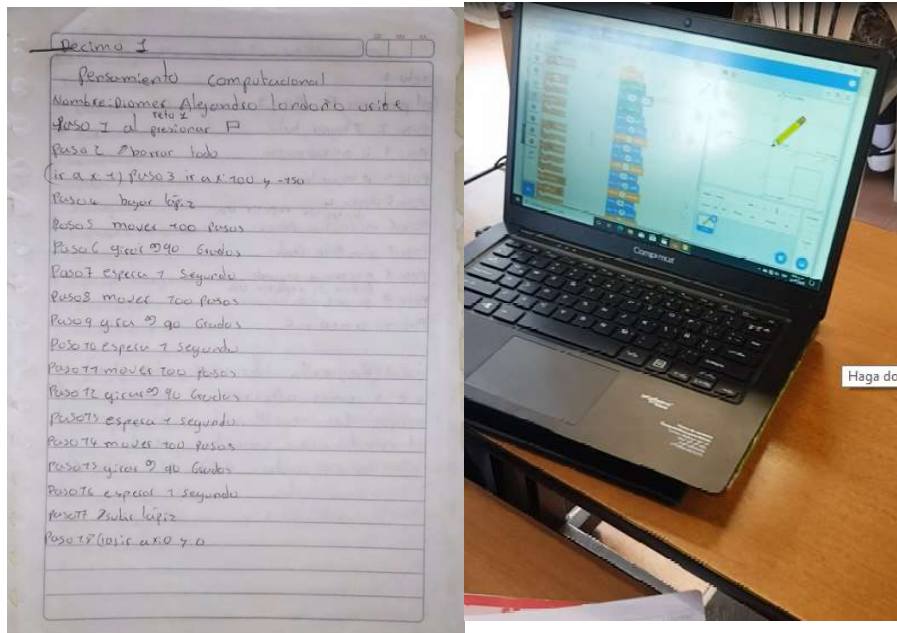 Decimo 1
Pensamiento computacional
Nombre: Diomer Alejandro Londoño uribe
reto 1
Paso 1 al presionar
Paso 2 borrar todo
Paso 3 ir a x: 100 y -150
Paso 4 bajar lápiz
Paso 5 mover 100 Pasos
Paso 6 girar 90 Grados
Paso 7 espera 1 Segundo
Paso 8 mover 100 pasos
Paso 9 girar 90 Grados
Paso 10 espera 1 segundo
Paso 11 mover 100 pasos
Paso 12 girar 90 Grados
Paso 13 espera 1 segundo
Paso 14 mover 100 pasos
Paso 15 girar 90 Grados
Paso 16 esperar 1 segundo
Paso 17 subir lápiz
Paso 18 ir a x: 0 y 0
Compumax
Haga do